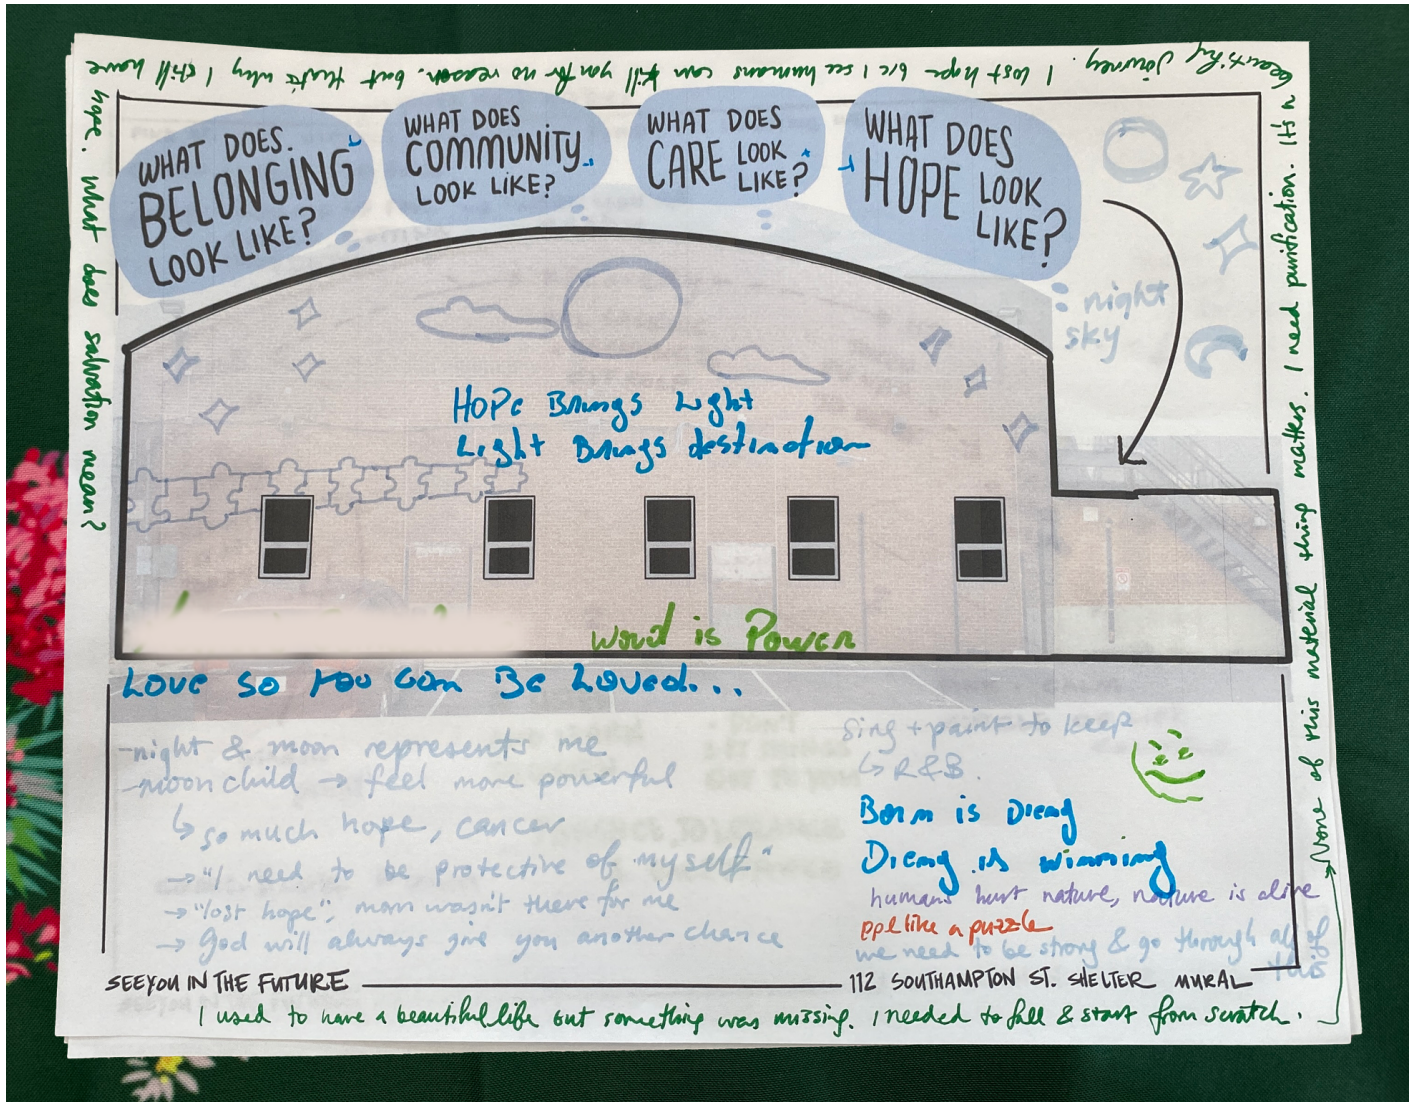 WHAT DOES
BELONGING
LOOK LIKE?
WHAT DOES
COMMUNITY
LOOK LIKE?
WHAT DOES
CARE LOOK
LIKE?
WHAT DOES
HOPE LOOK
LIKE?
night
sky
HOPe Brings Light
Light Brings destination
Word is Power
Love so You Can Be Loved...
-night & moon represents me
-moon child → feel more powerful
↳ so much hope, cancer
→ "I need to be protective of myself"
→ "lost hope", mom wasn't there for me
→ God will always give you another chance
-sing + paint to keep
↳ R&B.
Born is Dieng
Dieng is winning
humans hurt nature, nature is alive
ppl like a puzzle
we need to be strong & go through all of
this
SEE YOU IN THE FUTURE
112 SOUTHAMPTON ST. SHELTER MURAL
I used to have a beautiful life but something was missing. I needed to fall & start from scratch.
→ None of this material thing matters. I need purification. It's a
beautiful Journey. I lost hope b/c I see humans can kill you for no reason. but that's why I still have
hope. what does salvation mean?